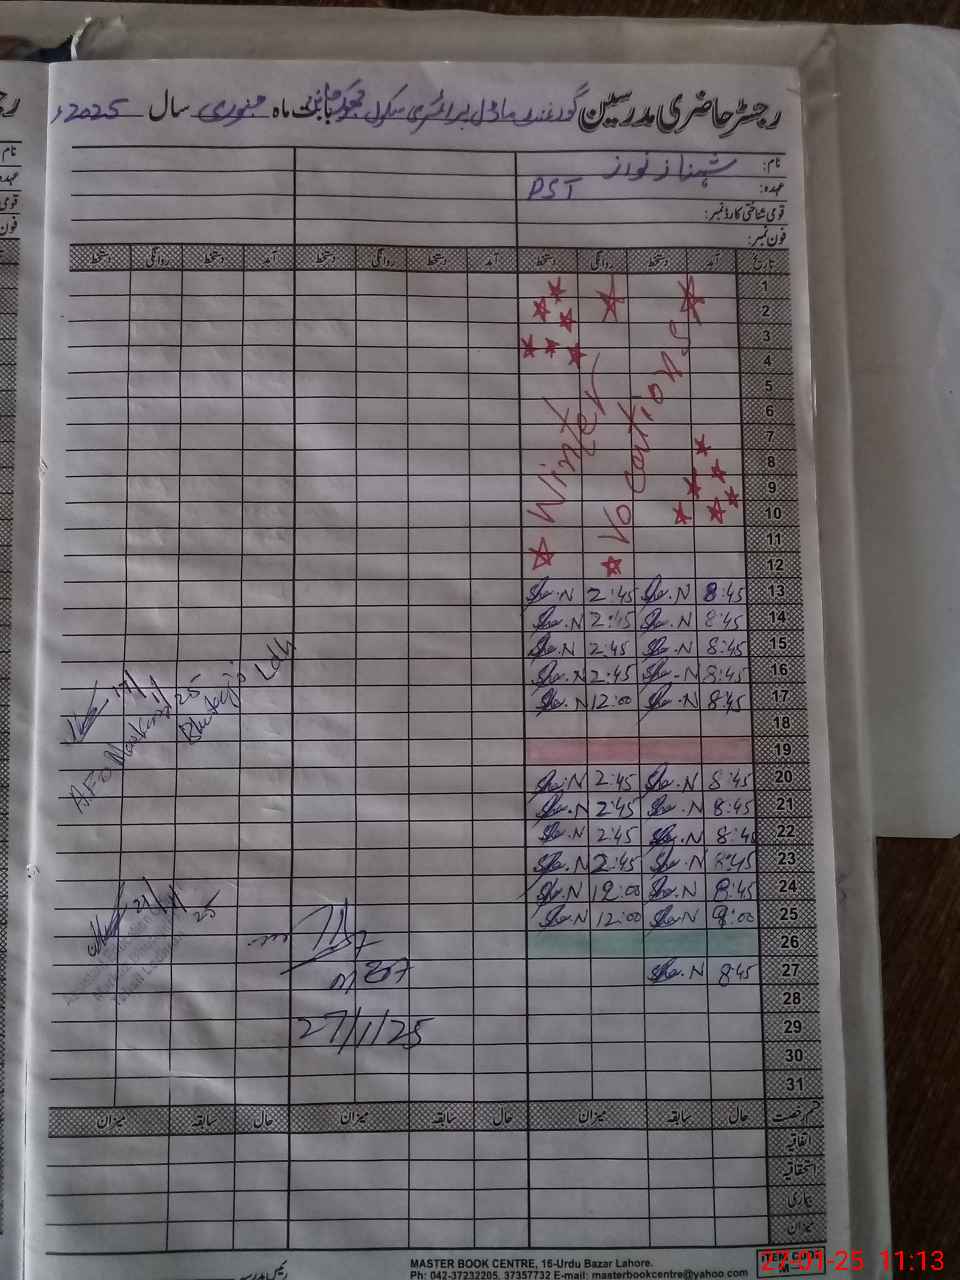 رجسٹر حاضری مدرسین گورنمنٹ ماڈل پرائمری سکول بابت ماہ جنوری سال 2025ء
نام: شہناز نواز
عہدہ: PST
قومی شناختی کارڈ نمبر:
فون نمبر:
تاریخ آمد دستخط روانگی دستخط آمد دستخط روانگی دستخط آمد دستخط روانگی دستخط
1
2
3
4
5
6
7
8
9
10
11
12
Winter
Vocations
13 8:45 Sha.N 2:45 Sha.N
14 8:45 Sha.N 2:45 Sha.N
15 8:45 Sha.N 2:45 Sha.N
16 8:45 Sha.N 2:45 Sha.N
17 8:45 Sha.N 12:00 Sha.N
18
19
20 8:45 Sha.N 2:45 Sha.N
21 8:45 Sha.N 2:45 Sha.N
22 8:45 Sha.N 2:45 Sha.N
23 8:45 Sha.N 2:45 Sha.N
24 8:45 Sha.N 12:00 Sha.N
25 9:00 Sha.N 12:00 Sha.N
26
27 8:45 Sha.N
28
29
30
31
17/1/25
AEO
Ldh
21/1/25
27/1/25
قسم رخصت حال سابقہ میزان حال سابقہ میزان حال سابقہ میزان
اتفاقیہ
استحقاقیہ
بیماری
میزان
MASTER BOOK CENTRE, 16-Urdu Bazar Lahore.
Ph: 042-37232205, 37357732 E-mail: masterbookcentre@yahoo.com
ITEM CODE
27-01-25 11:13